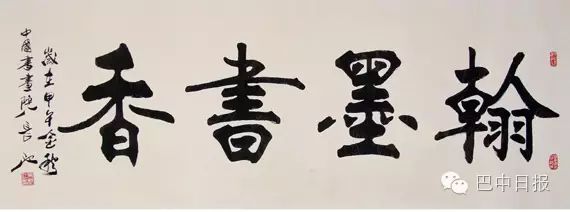 翰墨書香
歲在甲午金秋
中國書畫院長
巴中日报